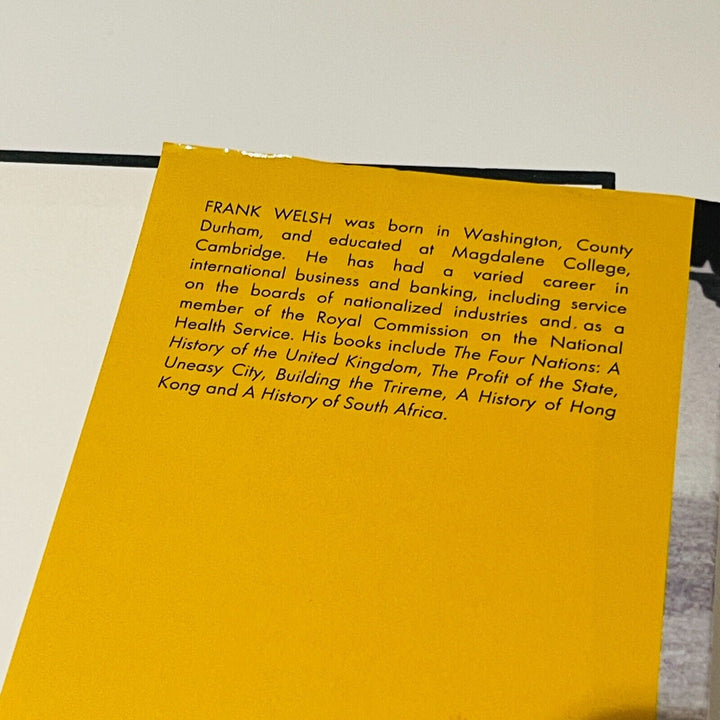 FRANK WELSH was born in Washington, County
Durham, and educated at Magdalene College,
Cambridge. He has had a varied career in
international business and banking, including service
on the boards of nationalized industries and as a
member of the Royal Commission on the National
Health Service. His books include The Four Nations: A
History of the United Kingdom, The Profit of the State,
Uneasy City, Building the Trireme, A History of Hong
Kong and A History of South Africa.